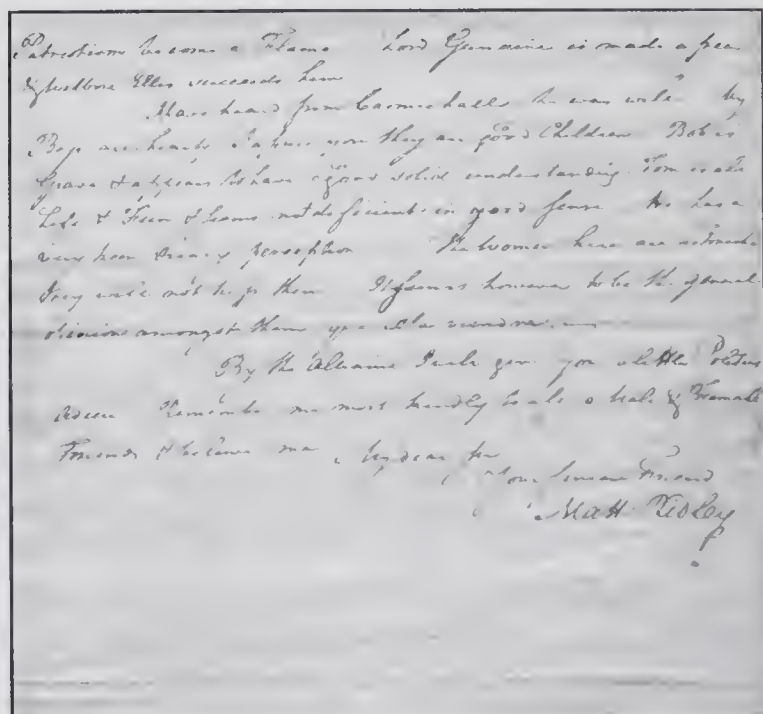 Patriotism become a Flame Lord Germaine is made a peer
& Welbore Ellis succeeds him
Have heard from Carmichall he was well My
Boys are hearty & a
 they are good Children Bob is
Grave & appears to have a good solid understanding Tom is all
Life & & seems not deficient in good sense He has a
very keen perception The women here are
They will not help them It seems however to be the general
opinion amongst them
By the Alliance I will give you a little Politics
Adieu Remember me most kindly to all & Female
Friends & believe me, My dear Sir
Your Sincere Friend
Matt. Ridley